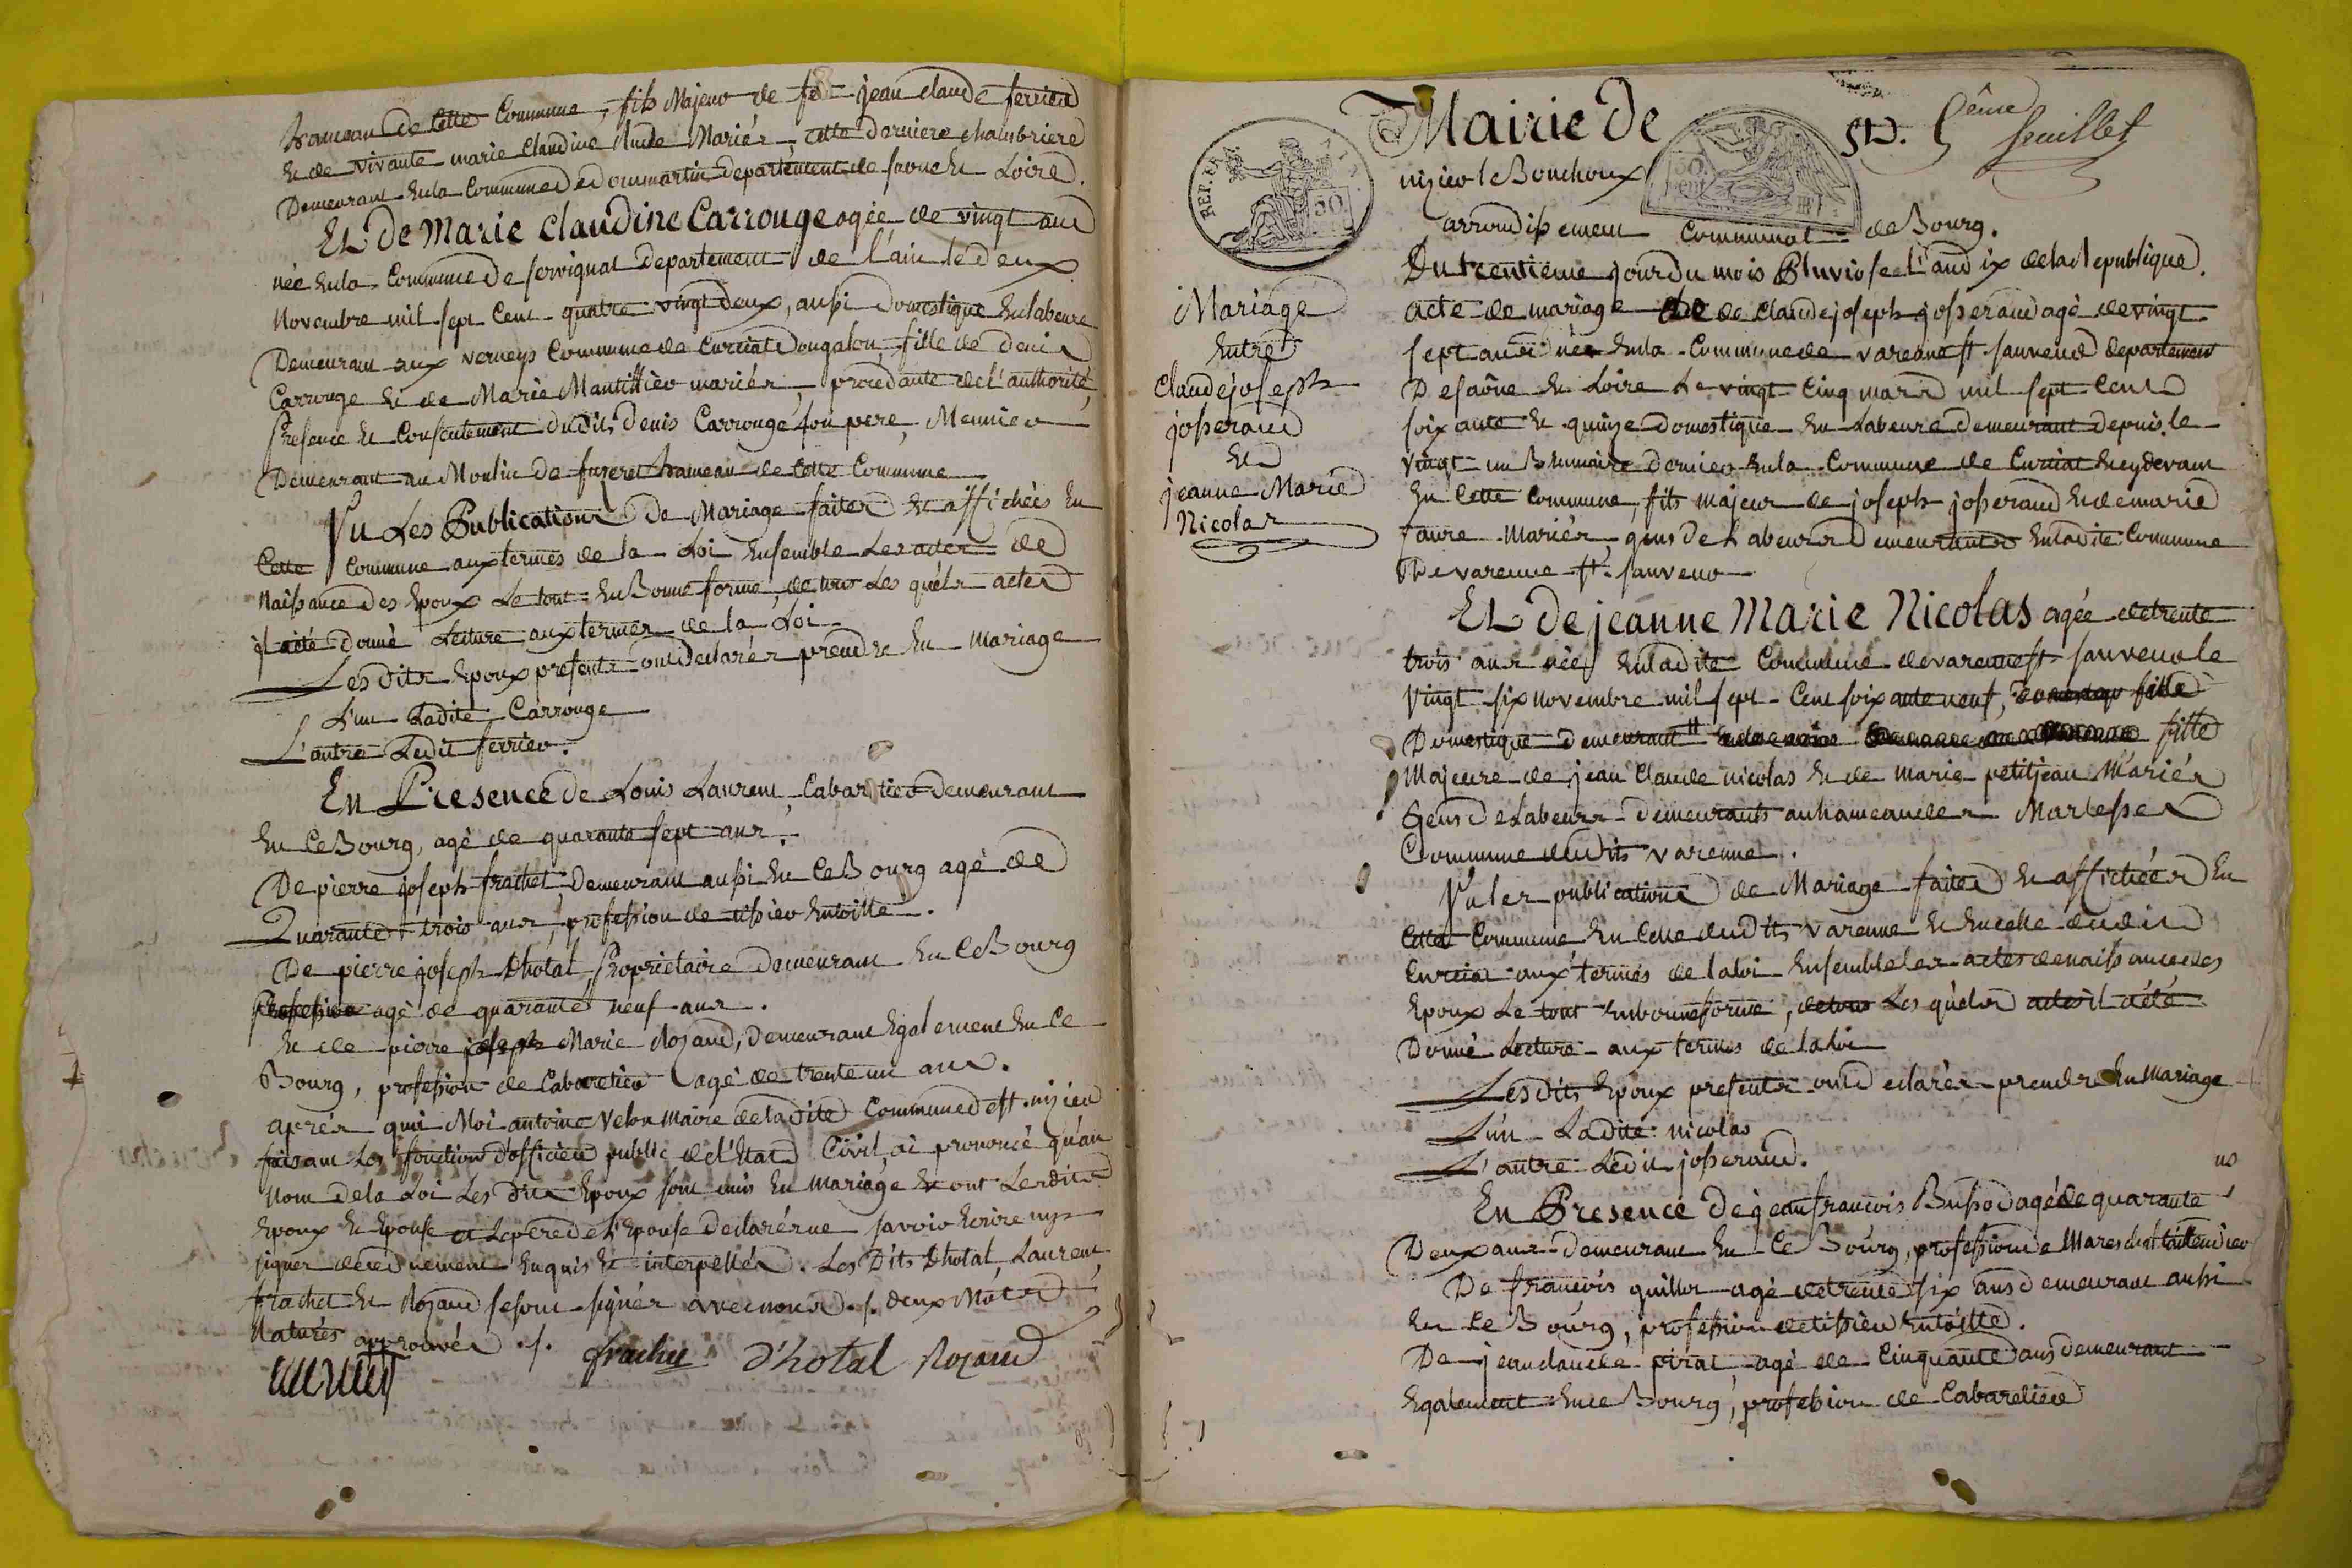 hameau de Cette Commune, fils Majeur de feu jean claude ferrier
Et de vivante marie Claudine Mariés, cette derniere chambriere
Demeurant En la Commune de dommartin departement de saone Et Loire.
Et De Marie Claudine Carrouge agée de vingt ans
née En la Commune de servignat departement de l'ain le deux
Novembre mil sept Cent quatre vingt deux, aussi Domestique En labeure
Demeurant aux verneys Commune de Curciat Dongalon, fille de denis
Carrouge Et de Marie Mantillier mariés, procedante de l'authorité,
Presence Et Consentement dudit denis Carrouge son pere, Meunier
Demeurant au Moulin de fuzeret hameau de Cette Commune
Vu Les Publications de Mariage faites Et affichées En
Cette Commune aux termes de la Loi Ensemble Les actes de
Naissance des Epoux Le tout En Bonne forme, de tous Les quels actes
il a été donné Lecture aux termes de la Loi
Les dits Epoux presents ont declarés prendre En mariage
L'un Ladite Carrouge
L'autre Ledit ferrier.
En Presence de Louis Laurent, Cabartier demeurant
En Ce Bourg, agé de quarante sept ans.
De pierre joseph frachet, Demeurant aussi En Ce Bourg agé de
Quarante trois ans, profession de tissier Entoille.
De pierre joseph Dhotal, Proprietaire demeurant En Ce Bourg
Profession agé de quarante neuf ans.
Et de pierre joseph Marie Rojand, Demeurant Egalement En Ce
Bourg, profession de Cabaretier agé de trente un ans.
après qui Moi antoine Velon maire de ladite Commune de st. nizier
faisant Les fonctions d'officier public de l'Etat Civil, ai prononcé qu'au
Nom de la Loi Les dits Epoux sont unis En Mariage Et ont Lesdits
Epoux Et Epouse et Le pere de l'Epouse declarés ne savoir Ecrire ny
signer de ce duement Enquis Et interpellés. Les Dits Dhotal, Laurent,
frachet Et Rojand se sont signés avec nous ./. deux Mots
Raturés approuvés ./. frachet D'hotal Rojand
Laurent
Mairie De St. 5ème feuillet
nizier le Bouchoux
REP. FRA.
50 Cent
arrondissement Communal de Bourg.
Mariage
Entre
Claude joseph
josserand
Et
jeanne Marie
Nicolas
Du trentieme jour du mois Pluviose L'an dix de la Republique.
Acte de mariage de Claude joseph josserand agé de vingt
sept ans né En la Commune de varenne st. sauveur departement
De saône Et Loire Le vingt Cinq mars mil sept Cent
soixante Et quinze Domestique En Labeure demeurant depuis le
vingt un Brumaire dernier En la Commune de Curciat Et cy devant
En Cette Commune, fils majeur de joseph josserand Et de marie
faure Mariés, gens de Labeurs Demeurants En ladite Commune
De varenne st. sauveur
Et De jeanne Marie Nicolas agée de trente
trois ans née En ladite Commune de varenne st. sauveur le
Vingt six novembre mil sept Cent soixante neuf, fille
Domestique demeurant fille
Majeure de jean Claude nicolas Et de marie petitjean Mariés
Gens de Labeurs demeurants au hameau des Marlesses
Commune dudit varenne.
Vu les publications de Mariage faites Et affichées En
Cette Commune En Celle dudit varenne Et En celle dudit
Curciat aux termes de la loi Ensemble les actes de naissance des
Epoux Le tout En bonne forme, de tous Les quels actes il a été
Donné Lecture aux termes de la loi
Les dits Epoux presents ont declarés prendre En mariage
L'un Ladite nicolas
L'autre Ledit josserand.
En Presence De jean francois Bussod agé de quarante
Deux ans demeurant En Ce Bourg, profession de Mareschal taillendier
De francois guillot agé de trente six ans demeurant aussi
En Ce Bourg, profession de tissier Entoille.
De jean claude pirat agé de Cinquante ans demeurant
Egalement En Ce Bourg, profession de Cabaretier